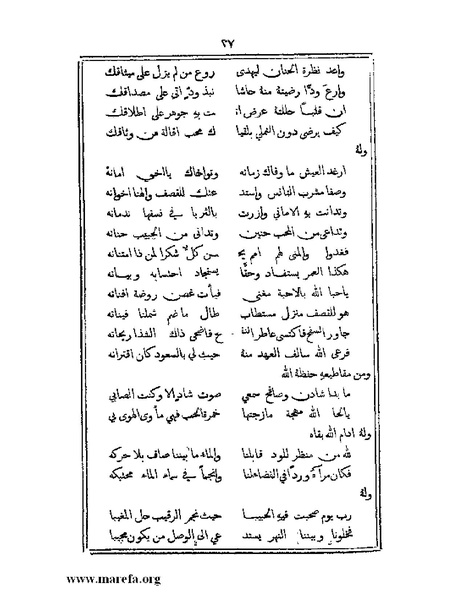 ٢٧
واعد نظرة الحنان ليهدى روع من لم يزل على ميثاقك
وارع ودًّا رضيته منه حاشا نبذ ودّ اتى على مصداقك
ان قلبًا حللته عرض مت به جوهر على اطلاقك
كيف يرضى دون التملي بلقيا ك محب اقالة من وثاقك
وله
ارغد العيش ما وفاك زمانه وتوافاك يا اخي امانه
وصفا مشرب التانس واستد عتك للقصف والهنا أخوانه
وتدانت به الاماني وازرت بالثريا في نسقها ندمانه
وتداعى من المحب حنين وتدانى من الحبيب حنانه
فغدوا والمنى لهم سن كل شكرا لمن ذا امتنانه
هكذا العمر يستفاد وحقًا يستجاد احتسابه وبيانه
ياحبا الله بالاحبة مغنى فيأت غصن روضة افنانه
هو للقصف منزل مستطاب طال ما ضم شملنا فينانه
جاور السفح فاكتسى عاطر ح فاضحى ذاك الشذا ريحانه
فرعى الله سالف العهد منه حيث لي بالسعود كان اقترانه
ومن مقاطيعه حفظه الله
ما بدا شادن وصافح سمعي صوت شاد الا وكنت الصابي
يالحا الله مهجة مازجتها خمرة الحب فهي مأوى الهوى لي
وله ادام الله بقاه
لله من منظر للود قابلنا والماء ما بيننا صاف بلا حركه
فكان مرآة وردّ في الفضاء لنا وانجمًا في سماء الماء محتبكه
وله
رب يوم صحبت فيه الحبيبا حيث فجر الرقيب حل المغيبا
فخلونا وبيننا النهر يستد عي الى الوصل من يكون مجيبا
www.marefa.org